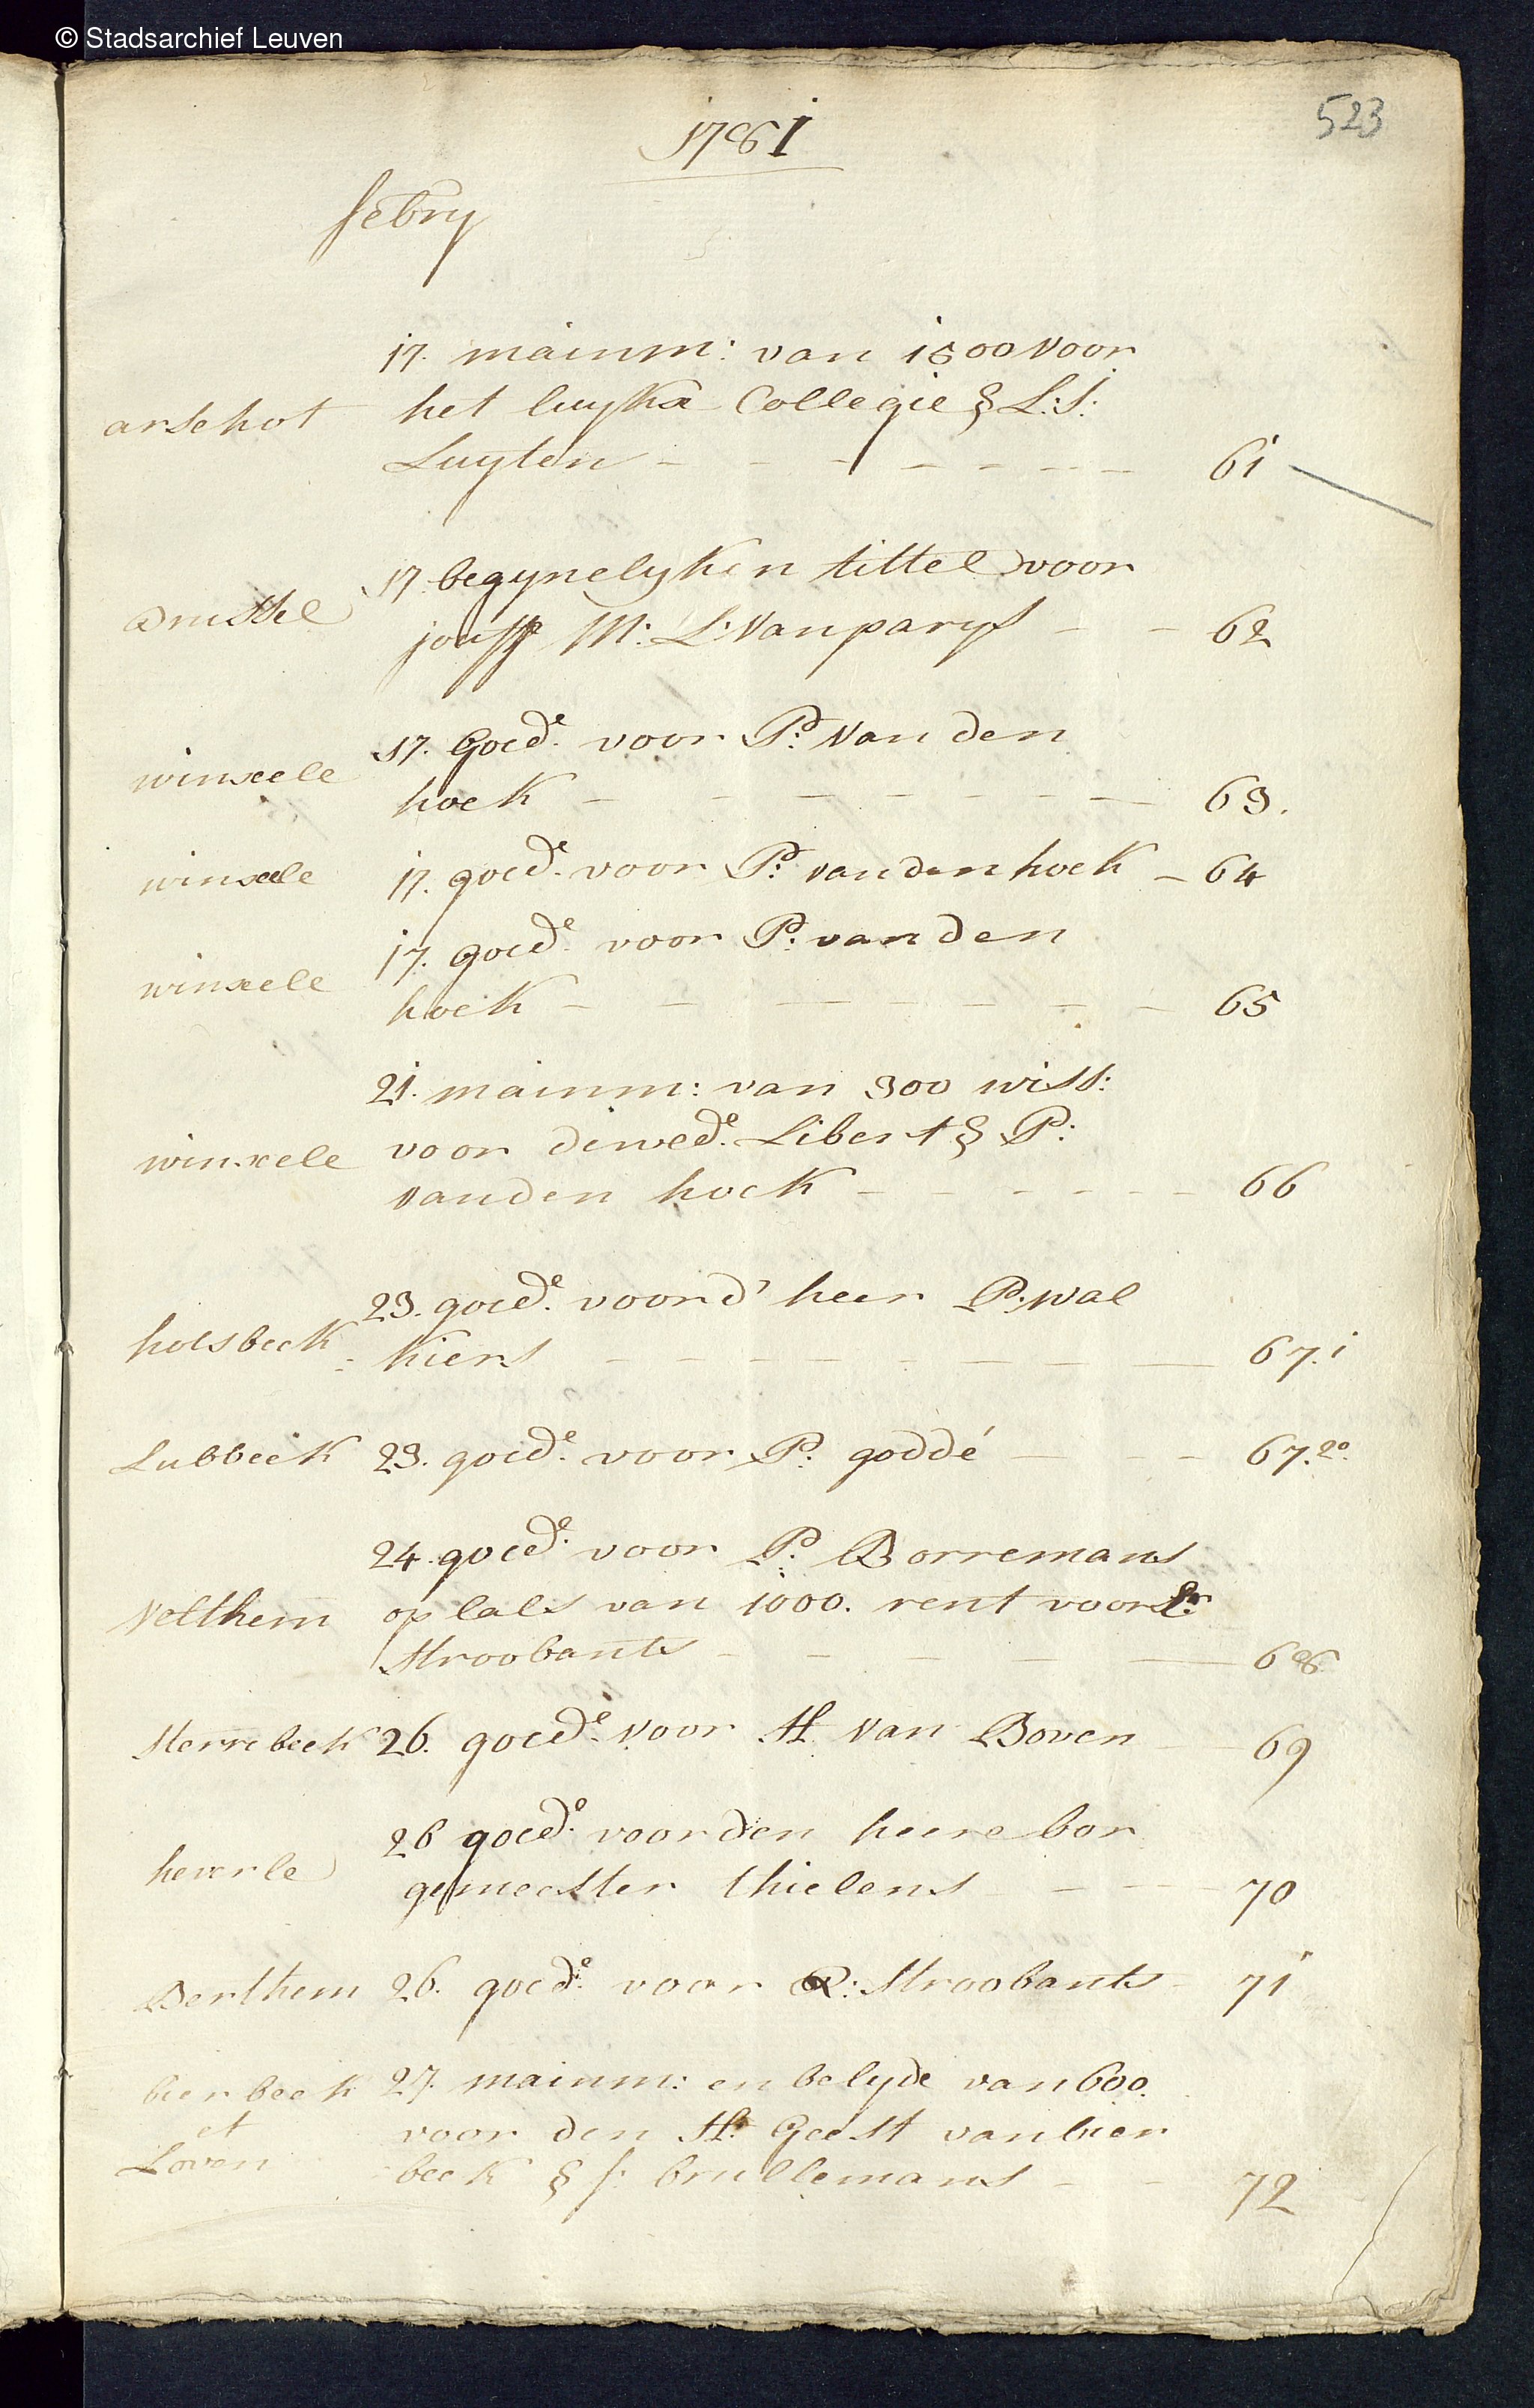 © Stadsarchief Leuven
523
1781
febry
17. mainm: van 1500 voor
arschot het luyxe Collegie § L: S:
Luyten - - - - - - - 61
17. begynelyken tittel voor
jouff M: L: Vanparys - - 62
17. Goed.e voor P: Van den
winxele
hoek - - - - - - - 63.
winxele 17. goed.e voor P: vanden hoek - 64
17. goed.e voor P: van den
winxele
hoek - - - - - - - 65
21. mainm: van 300 wiss:
winxele voor de wed.e Libert § P:
vanden hoek - - - - - - 66
23. goed.e voor d' heer P: wal
holsbeek
kiers - - - - - - - 67.1
Lubbeek 23. goed.e voor P: goddé - - - 67.2o.
24. goed.e voor P: Borremans
Velthem op lals van 1000. rent voor
Stroobants - - - - - 68
Sterrebeek 26. goed.e voor H. Van Boven - 69
26 goed.e voor den heere bor
heverle
gemeester thielens - - - 70
Berthem 26. goed.e voor R: Stroobants - 71
bierbeek 27. mainm: en belyde van 600.
et voor den H. Geest van bier
Loven beek § f: brullemans - - 72